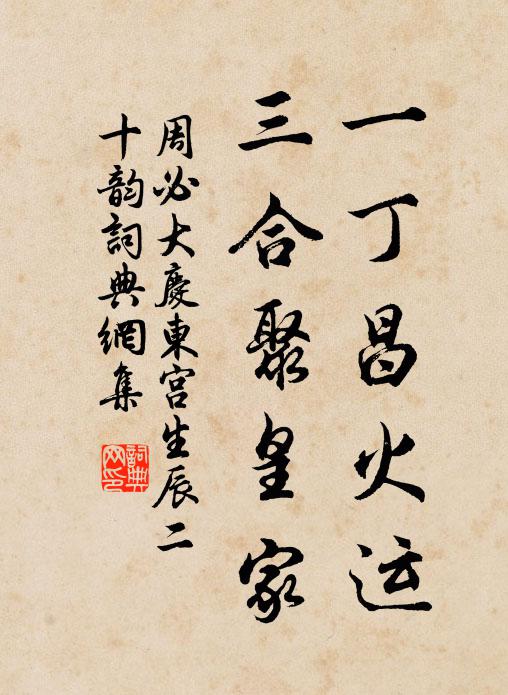 一丁昌火运
三合聚皇家
周必大慶東宮生辰二
十韵詞典網集
詞典
网印